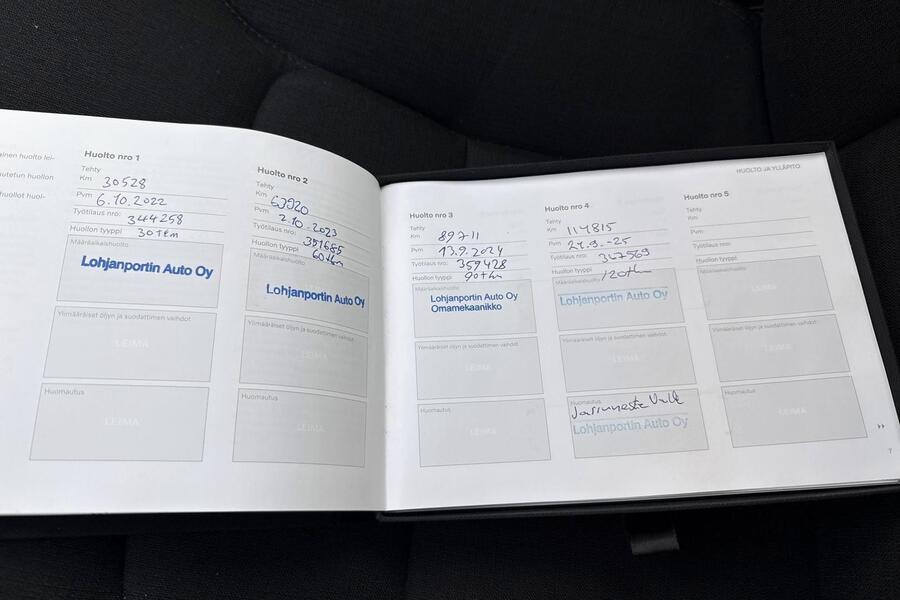 ainen huolto lei-
autetun huollon
huollot huol-
Huolto nro 1
Tehty
Km 30528
Pvm 6.10.2022
Työtilaus nro: 344258
Huollon tyyppi 30 tkm
Määräaikaishuolto
Lohjanportin Auto Oy
Ylimääräiset öljyn ja suodattimen vaihdot
LEIMA
Huomautus
LEIMA
Huolto nro 2
Tehty
Km 63920
Pvm 2.10.2023
Työtilaus nro: 351685
Huollon tyyppi 60tkm
Määräaikaishuolto
Lohjanportin Auto Oy
Ylimääräiset öljyn ja suodattimen vaihdot
LEIMA
Huomautus
LEIMA
HUOLTO JA YLLÄPITO
Huolto nro 3
Tehty
Km 89711
Pvm 13.9.2024
Työtilaus nro: 359428
Huollon tyyppi 90tkm
Määräaikaishuolto
Lohjanportin Auto Oy
Omamekaanikko
Ylimääräiset öljyn ja suodattimen vaihdot
LEIMA
Huomautus
LEIMA
Huolto nro 4
Tehty
Km 114815
Pvm 24.9.-25
Työtilaus nro: 367569
Huollon tyyppi 120tkm
Määräaikaishuolto
Lohjanportin Auto Oy
Ylimääräiset öljyn ja suodattimen vaihdot
LEIMA
Huomautus
Jarruneste Vaih
Lohjanportin Auto Oy
Huolto nro 5
Tehty
Km
Pvm
Työtilaus nro:
Huollon tyyppi
Määräaikaishuolto
LEIMA
Ylimääräiset öljyn ja suodattimen vaihdot
LEIMA
Huomautus
LEIMA
7